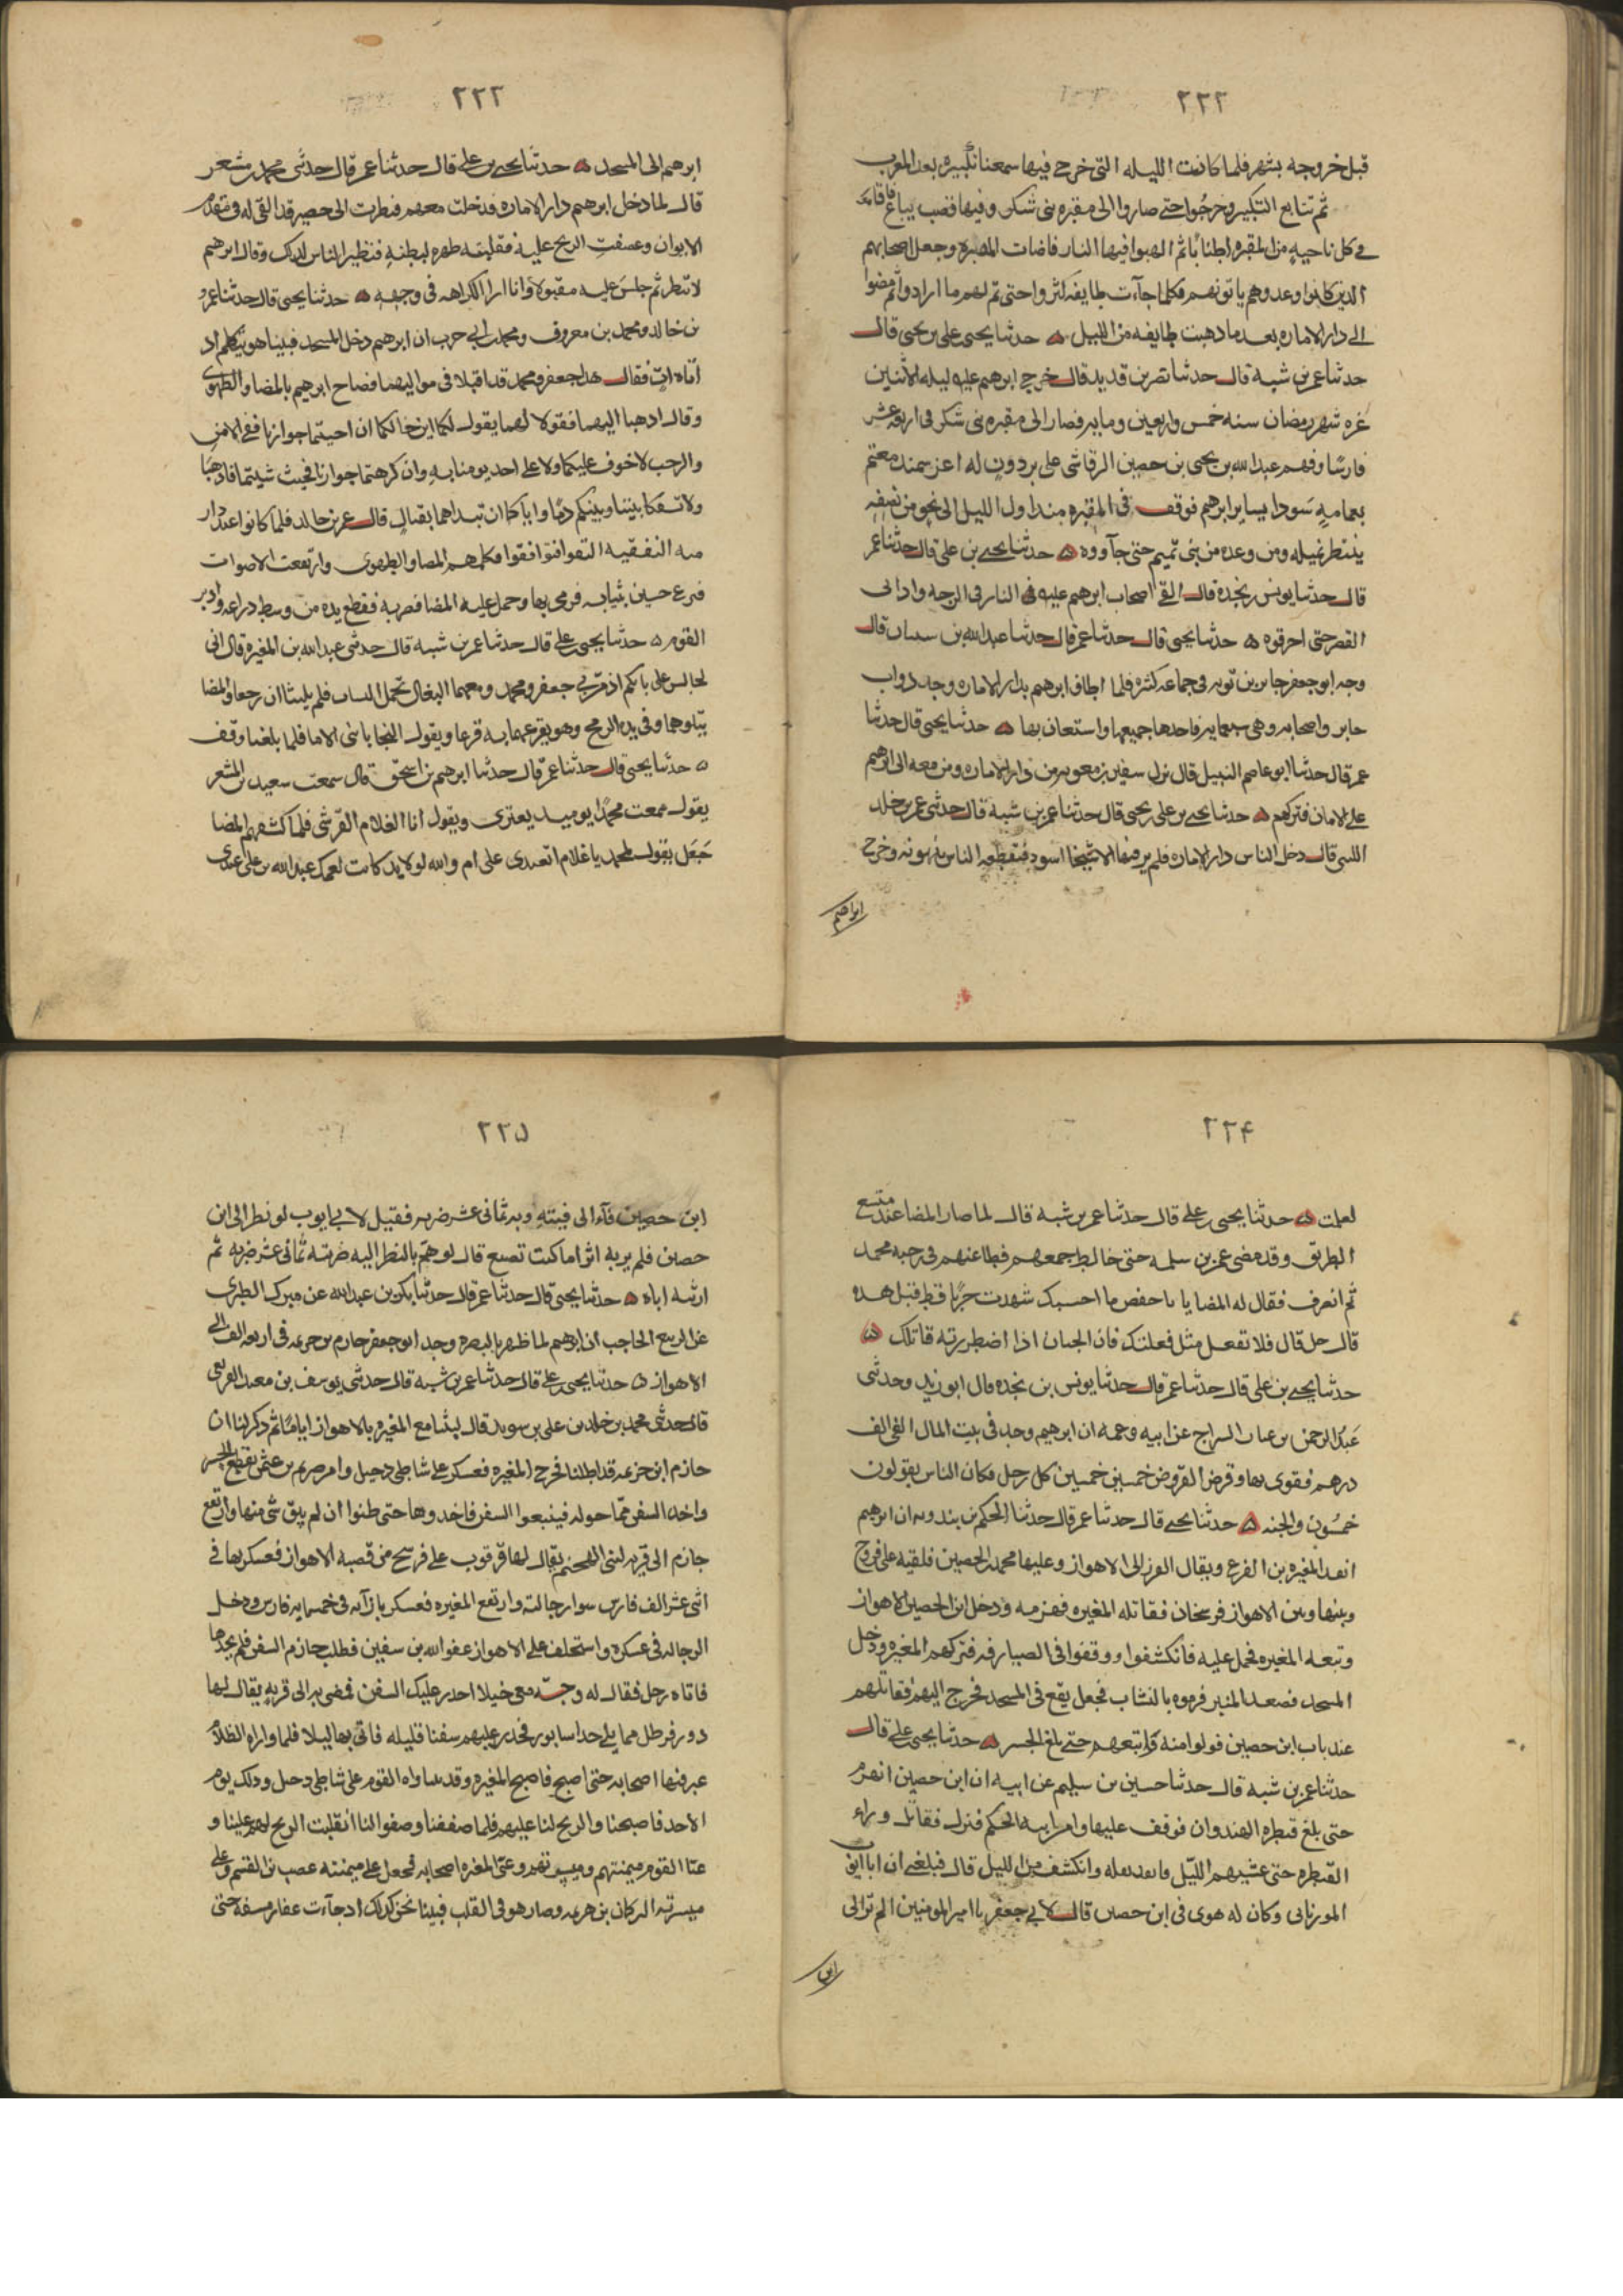 ٢٢٢
قبل خروجه بشهر فلما كانت الليله التى خرج فيها سمعنا تكبيره بعد المغرب
ثم تتابع التكبير وخرجوا حتى صاروا الى مقبره بنى شكر وفيها قصب يباع فاقامه
فى كل ناحيه من المقبره اطنابا ثم الهبوا فيها النار فاضات المقبره وجعل اصحابهم
الذين كانوا وعدوهم ياتونهم فكلما جآءت طايفه كثروا حتى تم لهم ما ارادوا ثم مضوا
الى دار الاماره بعد ما ذهبت طايفه من الليل ۞ حدثنا يحيى على بن يحيى قال
حدثنا عمر بن شبه قال حدثنا نصر بن قديد قال خرج ابرهيم عليه ليله الاثنين
غره شهر رمضان سنه خمس واربعين ومايه فصار الى مقبره بنى شكر فى اربعه عشر
فارسًا وفهم عبد الله بن يحيى بن حصين الرقاشى على برذون له اعز سمند معتم
بعمامهٍ سودا يساير ابرهيم فوقف فى المقبره منذ اول الليل الى نحو من نصفه
ينتظر نميله ومن وعده من بنى تميم حتى جآووه ۞ حدثنا يحيى بن على قال حدثنا عمر
قال حدثنا يونس بن نجده قال القى اصحاب ابرهيم عليه فى النار فى الرحبه وادانى
القصر حتى احرقوه ۞ حدثنا يحيى قال حدثنا عمر قال حدثنا عبد الله بن سنان قال
وجه ابو جعفر جابر بن توبه فى جماعه كثره فلما اطاف ابرهيم بدار الاماره وجد دواب
جابر واصحابه وهى سبعمايه فاخدها جميعها واستعان بها ۞ حدثنا يحيى قال حدثنا
عمر قال حدثنا ابو عاصم النبيل قال نزل سفين بن معويه من دار الاماره ومن معه الى ابرهيم
على الامان فتركهم ۞ حدثنا يحيى بن على بن يحيى قال حدثنا عمر بن شبه قال حدثنى عمر بن خلد
الليثى قال دخل الناس دار الاماره فلم يرفيها الا شيخا اسود فتقطعه الناس ينهبونه وخرج
ابراهيم
٢٢٣
ابرهيم الى المسجد ۞ حدثنا يحيى بن على قال حدثنا عمر قال حدثنى محمد بن مشعر
قال لما دخل ابرهيم دار الاماره فدخلت معهم فنظرت الى حصير قد القى له فى مقدم
الايوان وعصفت الريح عليه فقلبته ظهره لبطنهِ فتطير الناس لذلك وقال ابرهيم
لا تتطير ثم جلس عليه مقبولا وانا ارا الكراهه فى وجهه ۞ حدثنا يحيى قال حدثنا عمرُ
بن خالد ومحمد بن معروف ومحمد بن ابى حرب ان ابرهيم دخل المسجد فبينا هو يتكلم اذ
اتاه اتٍ فقال هذا جعفر ومحمد قد اقبلا فى مواليهما فصاح ابرهيم بالمضا والطهوى
وقال اذهبا اليهما فقولا لهما يقول لكما ابن خالكما ان احببتما جوازنا ففى الامن
والرحب لا خوف عليكما ولا على احد يومنا به وان كرهتما جوارنا فحيث شيتما فاذهبا
ولا تسفكا بيننا وبينكم دمًا واياكما ان تبداهما بقتال قال عمر بن خالد فلما كانوا عند دار
التقوا فتوافقوا فكلمهم المضا والطهوى وارتفعت الاصوات
فنزع حسين بثيابه فرمى بها وحمل عليه المضا فضربه فقطع يده من وسط دراعه وادبر
القوم ۞ حدثنا يحيى بن على قال حدثنا عمر بن شبه قال حدثنى عبد الله بن المغيره قال انى
لجالس على بابكم اذ مر بى جعفر ومحمد ومعهما البغال تحمل النشاب فلم يلبثا ان رجعا والمضا
يتلوهما وفى يده الرمح وهو يقرعهما به قرعا ويقول النجا يا بنى الاما فلما بلغنا وقف
۞ حدثنا يحيى قال حدثنا عمر قال حدثنا ابرهيم بن اسحق قال سمعت سعيد بن المشعر
يقول سمعت محمدًا يوميد يعتزى ويقول انا الغلام القرشى فلما كشفهم المضا
جَعَل يقول لمحمد يا غلام اتعدى على ام والله لولا يد كانت لعمك عبد الله بن على عندى
٢٢٤
لعلمت ۞ حدثنا يحيى بن على قال حدثنا عمر بن شبه قال لما صار المضا عند متسع
الطريق وقد مضى عمر بن سلمه حتى خالط جمعهم فطاعنهم فرجبه محمد
ثم انصرف فقال له المضا يا ابا حفص ما احسبك شهدت حربًا قط قبل هذه
قال اجل قال فلا تفعل مثل فعلتك فان الجبان اذا اضطررته قاتلك ۞
حدثنا يحيى بن على قال حدثنا عمر قال حدثنا يونس بن نجده قال ابو زيد وحدثنى
عَبد الرحمن بن عياب السراج عن ابيه وعمه ان ابرهيم وجد فى بيت المال الفى الف
درهم فقوى بها وفرض الفروض خمسين خمسين كل رجل فكان الناس يقولون
خمسُون والجنه ۞ حدثنا يحيى قال حدثنا عمر قال حدثنا الحكم بن بندويه ان ابرهيم
انفد المغيره بن الفزع ويقال الفزر الى الاهواز وعليها محمد الحصين فلقيه على فروج
وبينها وبين الاهواز فرسخان فقاتله المغيره فهزمه ودخل ابن الحصين الاهواز
وتبعه المغيره فحمل عليه فانكشفوا ووقفوا فى الصيارفه فتركهم المغيره ودخل
المسجد فصعد المنبر فرموه بالنشاب فجعل يقع فى المسجد فخرج اليهم فقاتلهم
عند باب ابن حصين فولوا منه واتبعهم حتى بلغ الجسر ۞ حدثنا يحيى بن على قال
حدثنا عمر بن شبه قال حدثنا حسين بن سليم عن ابيه ان ابن حصين انهزم
حتى بلغ قنطره الهندوان فوقف عليها وامر ابنه الحكم فنزل فقاتل وراء
القنطره حتى عشيهم الليل وانكشف من الليل قال فبلغنى ان ابا ايوب
المورياني وكان له هوى فى ابن حصين قال لابى جعفر يا امير المومنين الم تر الى
ابن
٢٢٥
ابن حصين فآء الى فيته وبه ثمانى عشر ضربه فقيل لابى ايوب لو نظر الى ابن
حصين فلم ير به اثرا ما كنت تصنع قال لو هَمّ بالنظر اليه ضربته ثمانى عشر ضربه ثم
اريته اياه ۞ حدثنا يحيى قال حدثنا عمر قال حدثنا بكر بن عبد الله عن مبرك الطبرى
عن الربيع الحاجب ان ابرهيم لما ظهر بالبصره وجه ابو جعفر خازم بن خزيمه فى اربعه الف الى
الاهواز ۞ حدثنا يحيى بن على قال حدثنا عمر بن شبه قال حدثنى يوسف بن معبد القريعى
قال حدثنى محمد بن خلد بن على بن سويد قال لبثنا مع المغيره بالاهواز ايامًا ثم ذكر لنا ان
خازم ابن خزيمه قد اظلنا فخرج المغيره فعسكر على شاطى دجيل وامر صريم بن عثمن بقطع الجسر
واخذ السفن مما حوله فيتبعوا السفن فاخدوها حتى ظنوا ان لم يبق شى منها وارتفع
خازم الى قريه لبنى الهجيم يقال لها قرقوب على فرسخ من قصبه الاهواز فعسكر بها فى
اثنى عشر الف فارس سوا رجالته وارتفع المغيره فعسكر بازآيه فى خمسمايه فارس ودخل
الرجاله فى عسكره واستخلف على الاهواز عفو الله بن سفين فطلب خازم السفن فلم يجدها
فاتاه رجل فقال له وجّه معى خيلا احدر عليك السفن فمضى به الى قريه يقال لها
دور قرطل مما يلى جنداسابور فحدر عليهم سفنا قليله فاتى بها ليلا فلما واراه الظلام
عبر فيها اصحابه حتى اصبح فاصبح المغيره وقد ساواه القوم على شاطى دجيل وذلك يوم
الاحد فاصبحنا والريح لنا عليهم فلما صففنا وصفوا لنا انقلبت الريح لهم علينا و
عبا القوم ميمنتهم وميسرتهم وعبى المغيره اصحابه فجعل على ميمنته عصب بن القسم وعلى
ميسرته التركان بن هريم وصار هو فى القلب فبينا نحن كذلك اذ جآءت عقاب مسفه حتى